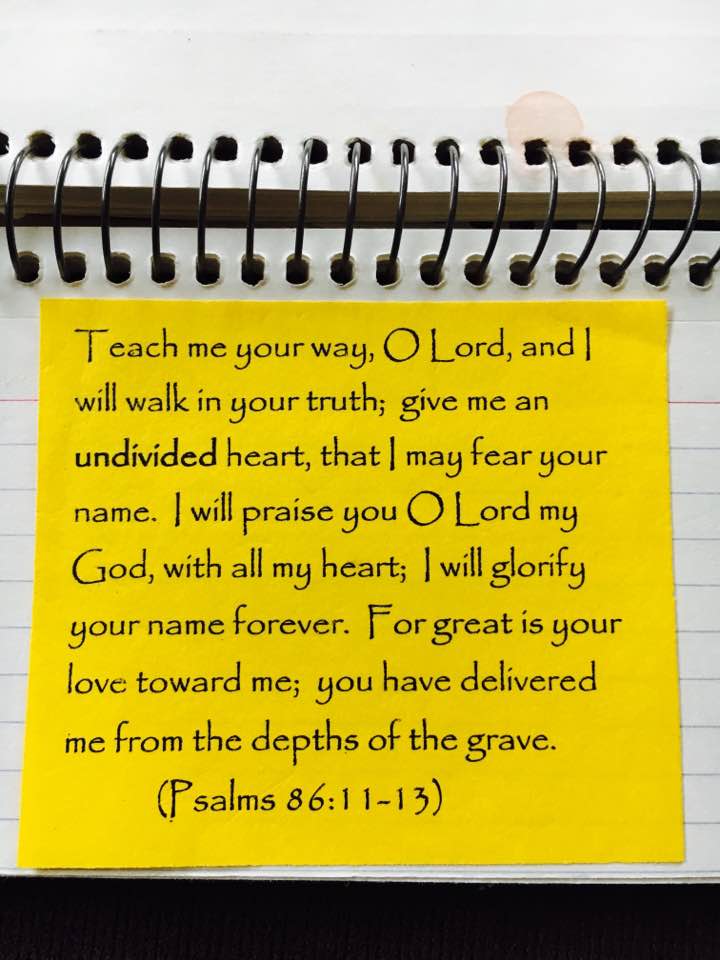 Teach me your way, O Lord, and I
will walk in your truth; give me an
undivided heart, that I may fear your
name. I will praise you O Lord my
God, with all my heart; I will glorify
your name forever. For great is your
love toward me; you have delivered
me from the depths of the grave.
(Psalms 86:11-13)